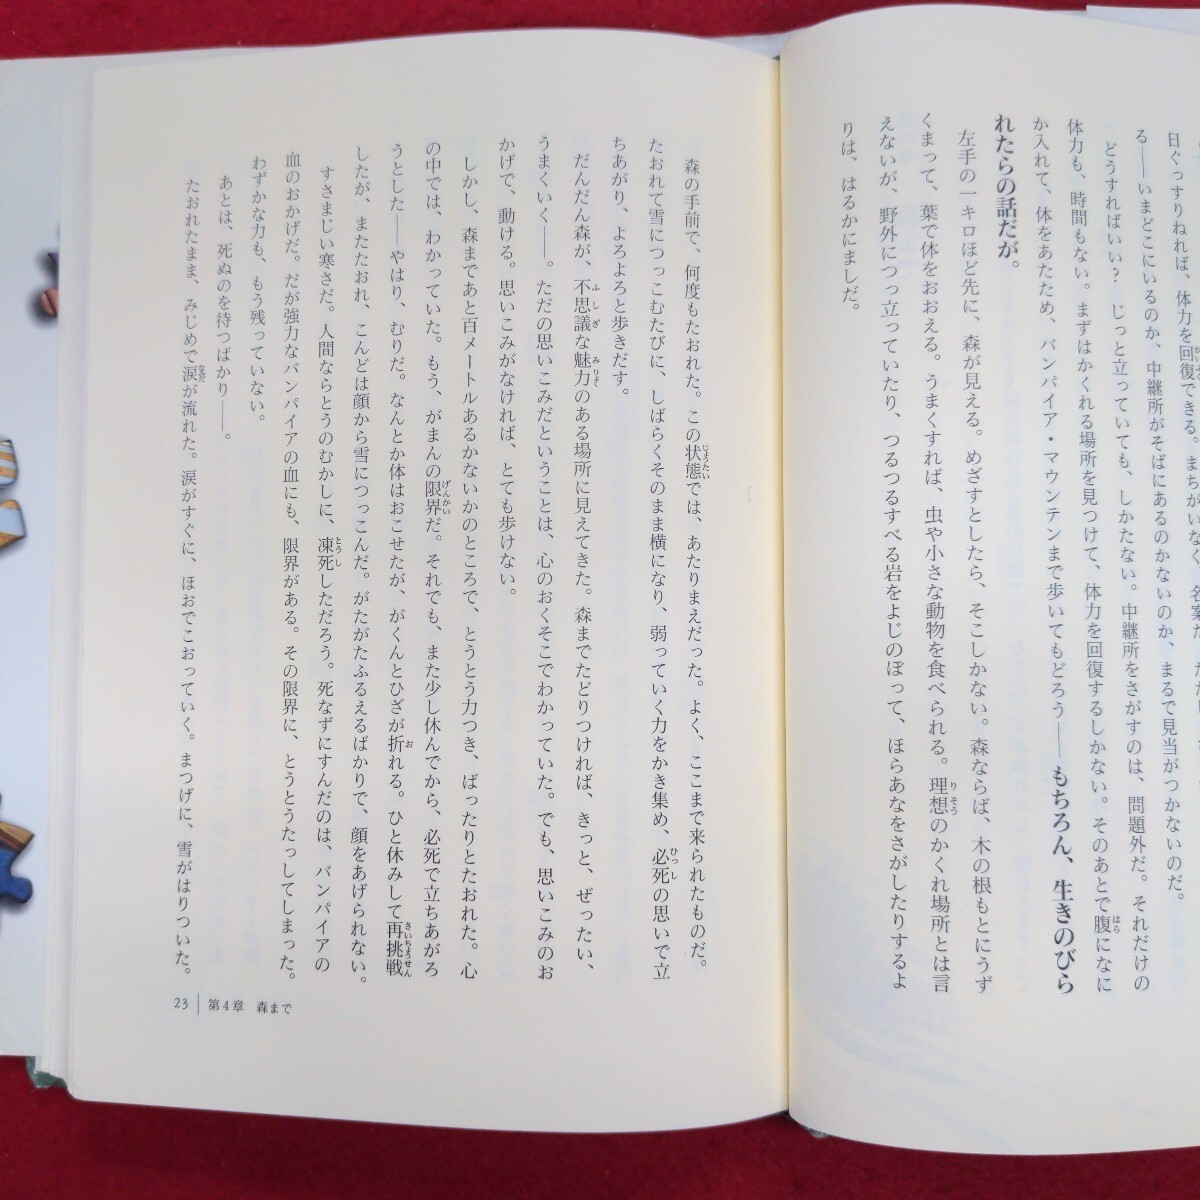 日ぐっすりねれば、体力を回復できる。まちがいなく、名案だ。
る――いまどこにいるのか、中継所がそばにあるのかないのか、まるで見当がつかないのだ。
どうすればいい？　じっと立っていても、しかたない。中継所をさがすのは、問題外だ。それだけの
体力も、時間もない。まずはかくれる場所を見つけて、体力を回復するしかない。そのあとで腹になに
か入れて、体をあたため、バンパイア・マウンテンまで歩いてもどろう――もちろん、生きのびら
れたらの話だが。
左手の一キロほど先に、森が見える。めざすとしたら、そこしかない。森ならば、木の根もとにうず
くまって、葉で体をおおえる。うまくすれば、虫や小さな動物を食べられる。理想のかくれ場所とは言
えないが、野外につっ立っていたり、つるつるすべる岩をよじのぼって、ほらあなをさがしたりするよ
りは、はるかにましだ。
森の手前で、何度もたおれた。この状態では、あたりまえだった。よく、ここまで来られたものだ。
たおれて雪につっこむたびに、しばらくそのまま横になり、弱っていく力をかき集め、必死の思いで立
ちあがり、よろよろと歩きだす。
だんだん森が、不思議な魅力のある場所に見えてきた。森までたどりつければ、きっと、ぜったい、
うまくいく――。ただの思いこみだということは、心のおくそこでわかっていた。でも、思いこみのお
かげで、動ける。思いこみがなければ、とても歩けない。
しかし、森まであと百メートルあるかないかのところで、とうとう力つき、ばったりとたおれた。心
の中では、わかっていた。もう、がまんの限界だ。それでも、また少し休んでから、必死で立ちあがろ
うとした――やはり、むりだ。なんとか体はおこせたが、がくんとひざが折れる。ひと休みして再挑戦
したが、またたおれ、こんどは顔から雪につっこんだ。がたがたふるえるばかりで、顔をあげられない。
すさまじい寒さだ。人間ならとうのむかしに、凍死しただろう。死なずにすんだのは、バンパイアの
血のおかげだ。だが強力なバンパイアの血にも、限界がある。その限界に、とうとうたっしてしまった。
わずかな力も、もう残っていない。
あとは、死ぬのを待つばかり――。
たおれたまま、みじめで涙が流れた。涙がすぐに、ほおでこおっていく。まつげに、雪がはりついた。
23 第4章　森まで